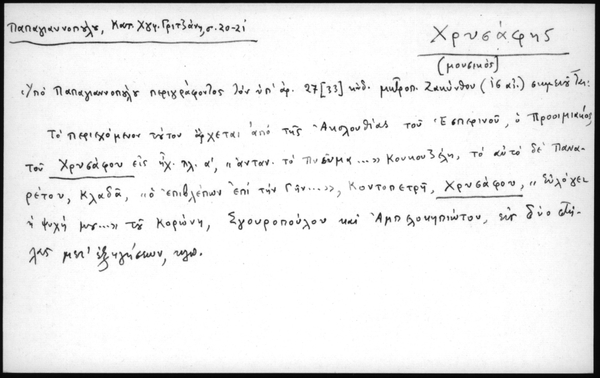 Παπαγιαννοπούλου, Κατ. Χγφ. Γριτζάνη, σ. 20-21
Χρυσάφης
(μουσικός)
Ὑπό Παπαγιαννοπούλου περιγράφοντος τόν ὑπ' ἀρ. 27[33] κώδ. μητροπ. Ζακύνθου (ις αἰ.) σημειοῦται:
Τό περιεχόμενον τούτου ἄρχεται ἀπό τῆς Ἀκολουθίας τοῦ Ἑσπερινοῦ, ὁ Προοιμιακός,
τοῦ Χρυσάφου εἰς ἦχ. πλ. α', "ἀνταν. τό πνεῦμα...» Κουκουζέλη, τό αὐτό δέ Πανα-
ρέτου, Κλαδᾶ, "ὁ ἐπιβλέπων ἐπί τήν Γῆν...», Κοντοπετρῆ, Χρυσάφου, "εὐλόγει
ἡ ψυχή μου...» τοῦ Κορώνη, Σγουροπούλου καί Ἀμπελοκηπιώτου, εἰς δύο στή-
λας μετ' ἐξηγήσεων, κλπ.